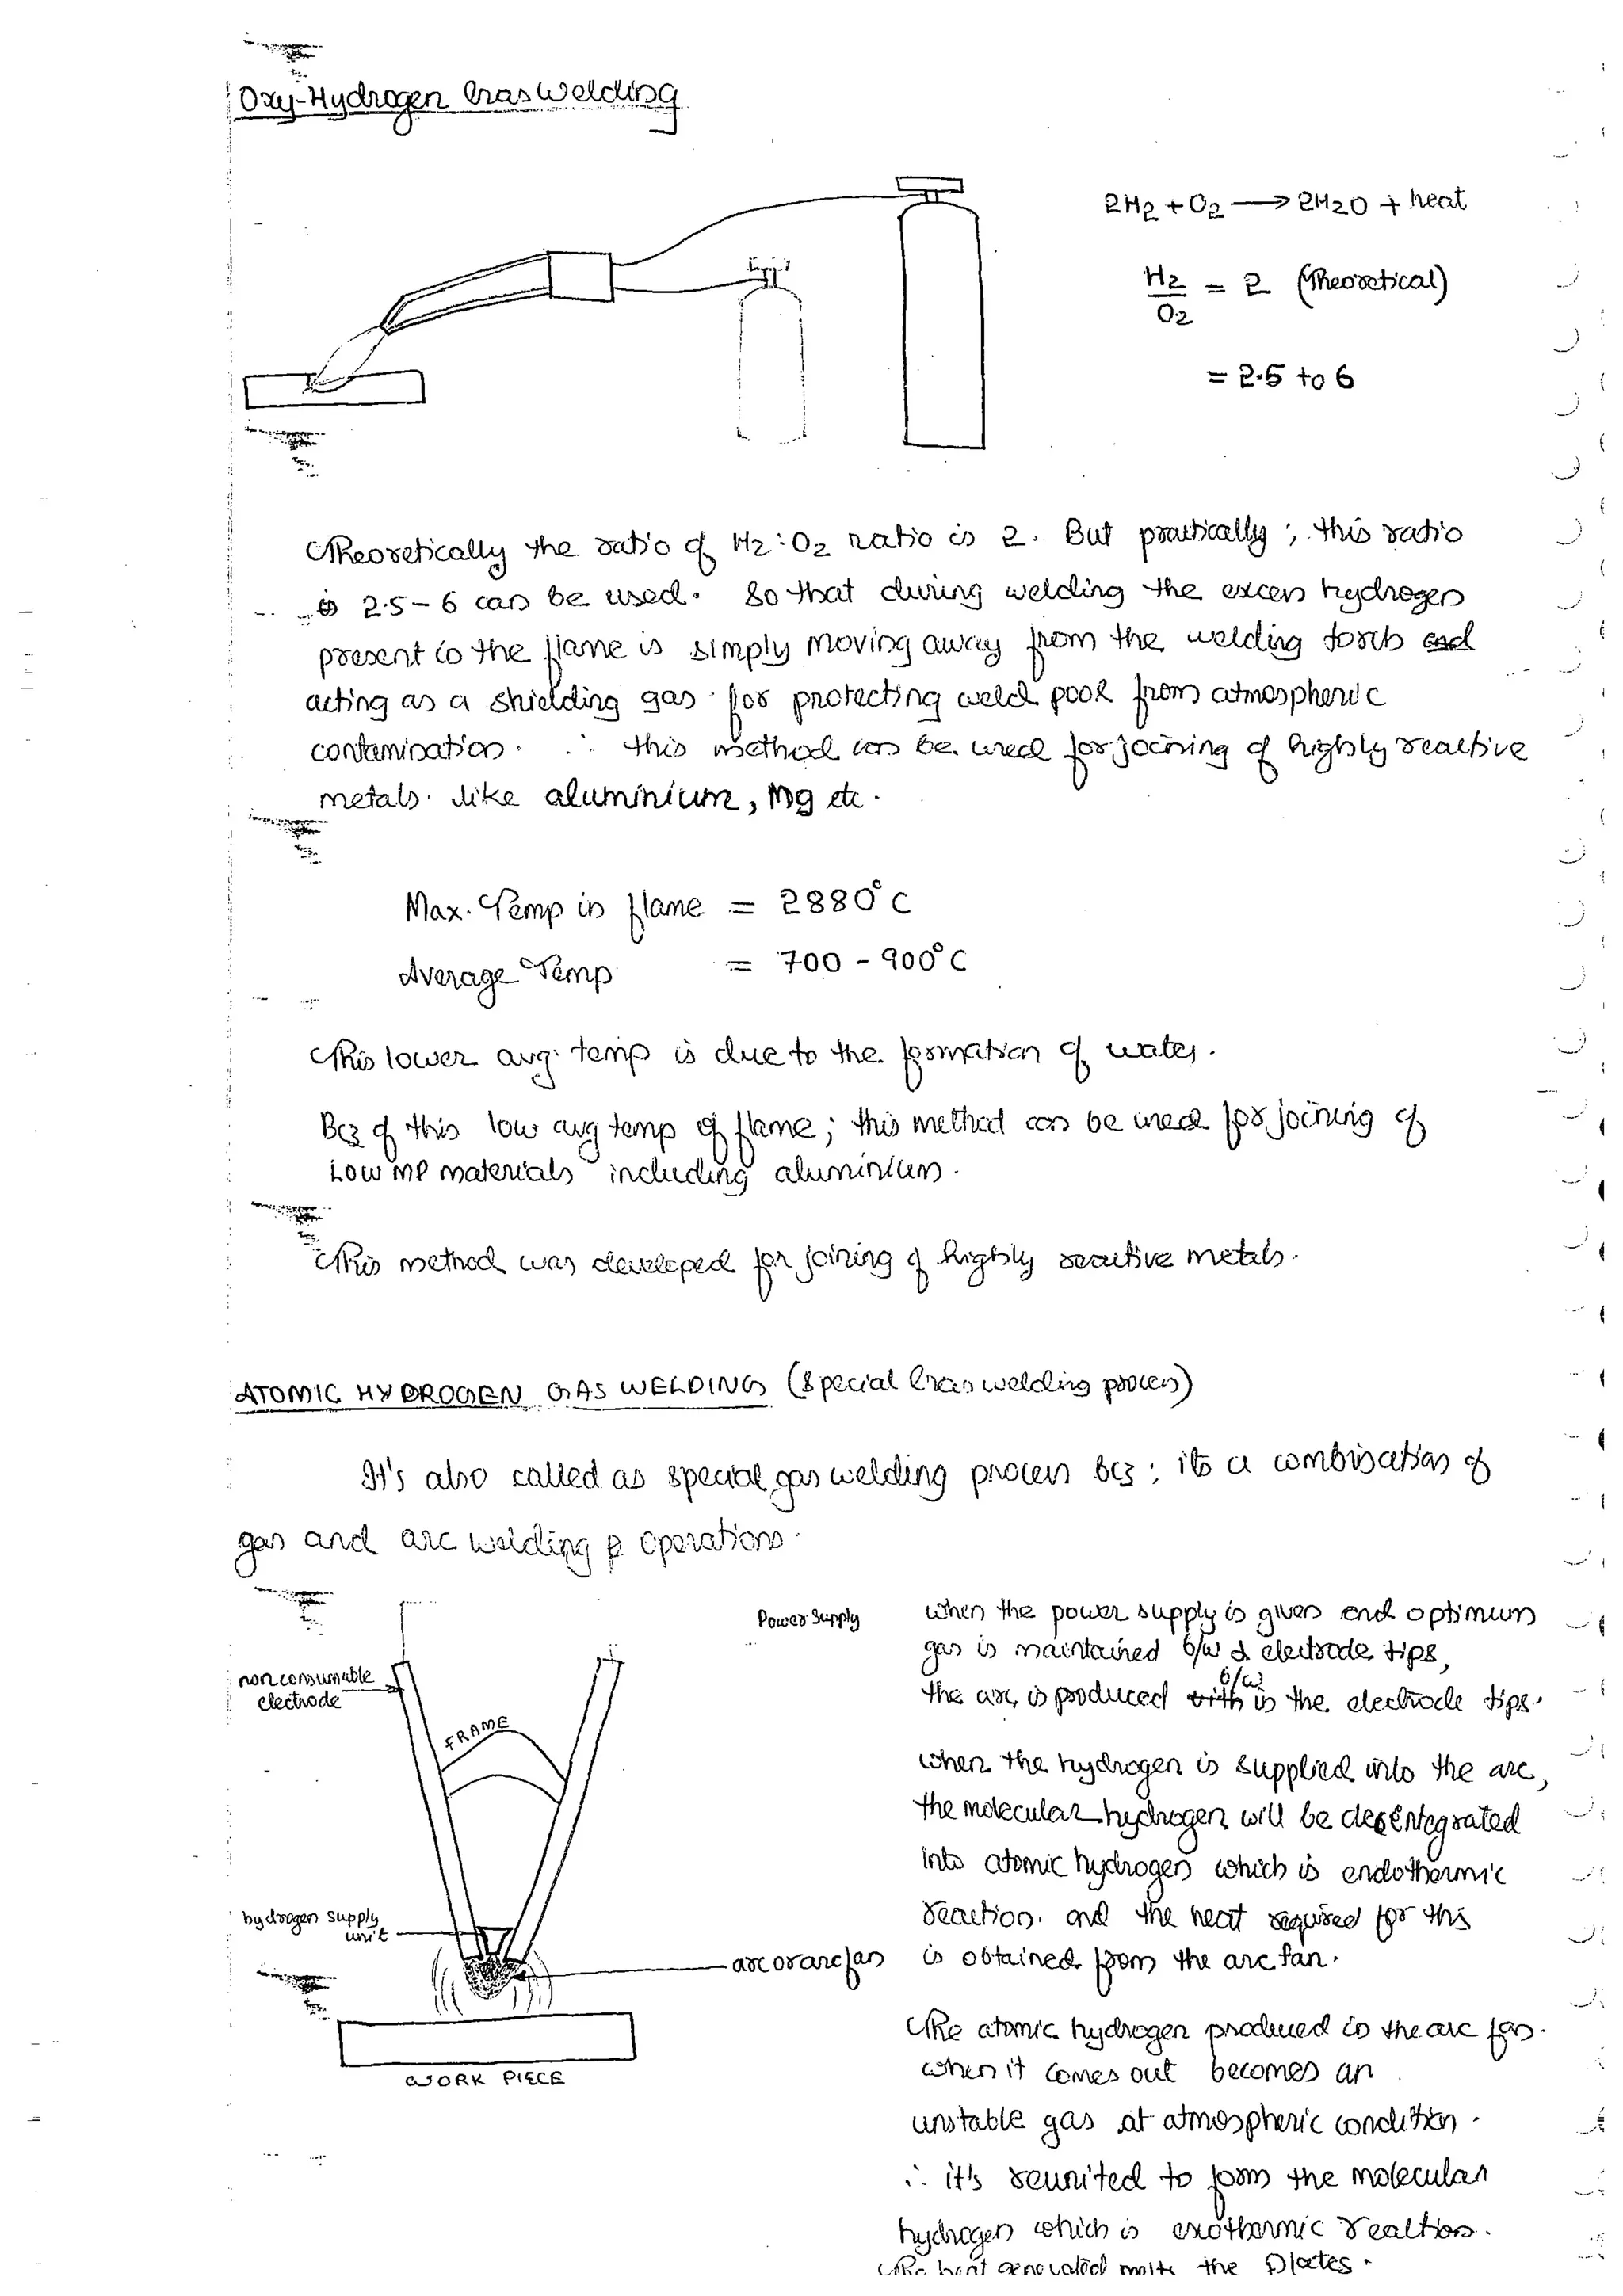 Oxy-Hydrogen Gas Welding
2H2 + O2 → 2H2O + heat
H2/O2 = 2 (Theoretical)
= 2.5 to 6
Theoretically the ratio of H2:O2 ratio is 2. But practically ; this ratio
is 2.5 - 6 can be used. So that during welding the excess hydrogen
present in the flame is simply moving away from the welding torch and
acting as a shielding gas for protecting weld pool from atmospheric
contamination. ∴ this method can be used for joining of highly reactive
metals like aluminium, Mg etc.
Max. Temp in flame = 2880°C
Average Temp = 700 - 900°C
This lower avg. temp is due to the formation of water.
Bcz of this low avg temp of flame; this method can be used for joining of
Low MP materials including aluminium.
This method was developed for joining of highly reactive metals.
ATOMIC HYDROGEN GAS WELDING (Special Gas welding process)
It's also called as special gas welding process bcz; its a combination of
gas and arc welding operations.
Power Supply
non consumable
electrode
FRAME
hydrogen supply
unit
arc or arc fan
WORK PIECE
when the power supply is given and optimum
gas is maintained b/w 2 electrode tips,
the arc is produced b/w the electrode tips.
when the hydrogen is supplied into the arc,
the molecular hydrogen will be desentegrated
into atomic hydrogen which is endothermic
reaction. and the heat required for this
is obtained from the arc fan.
The atomic hydrogen produced in the arc fan.
when it comes out becomes an
unstable gas at atmospheric condition.
∴ it's reunited to form the molecular
hydrogen which is exothermic reaction.
The heat generated melts the plates.